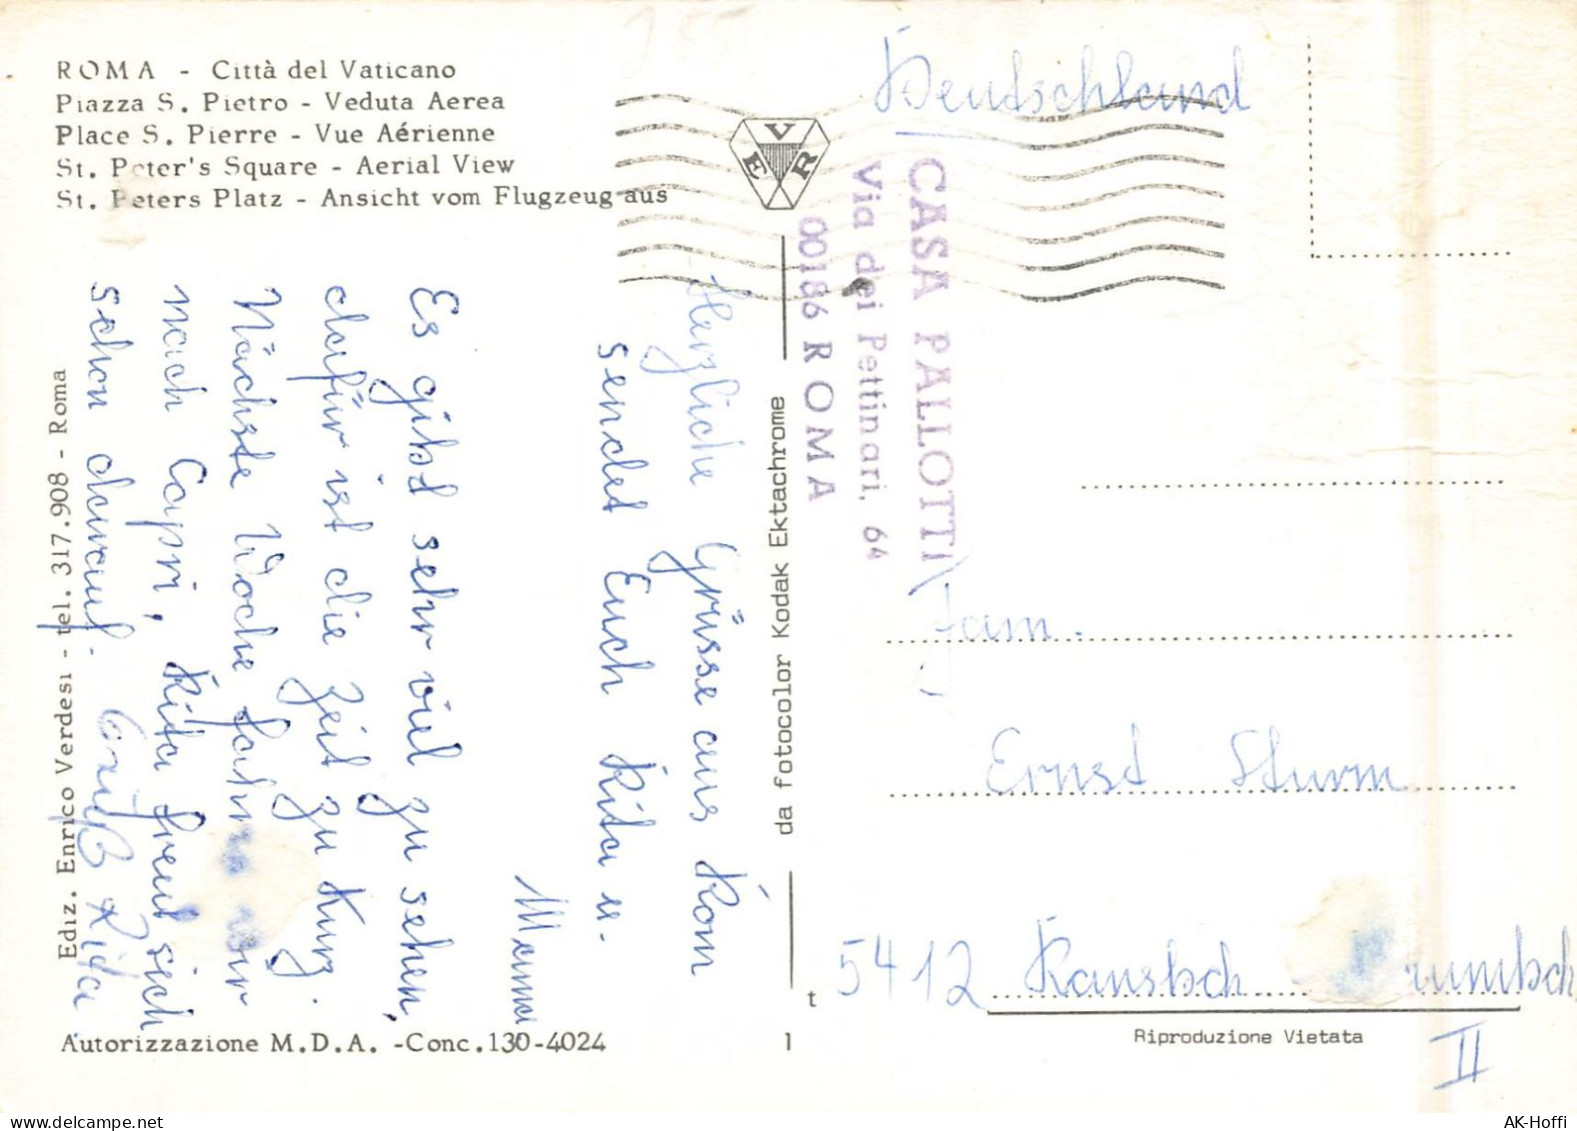 ROMA - Città del Vaticano
Piazza S. Pietro - Veduta Aerea
Place S. Pierre - Vue Aérienne
St. Peter's Square - Aerial View
St. Peters Platz - Ansicht vom Flugzeug aus
Herzliche Grüsse aus Rom
sendet Euch Rita u.
Mama
Es gibt sehr viel zu sehen,
dafür ist die Zeit zu Kurz.
Nächste Woche fahren wir
nach Capri, Rita freut sich
schon darauf.
Rita
Ediz. Enrico Verdesi - tel. 317.908 - Roma
Autorizzazione M.D.A. -Conc.130-4024
da fotocolor Kodak Ektachrome
t
1
VER
CASA PALLOTTI
Via dei Pettinari, 64
00186 ROMA
Deutschland
Fam.
Ernst Sturm
5412 Ransbch
II
Riproduzione Vietata
AK-Hoffi